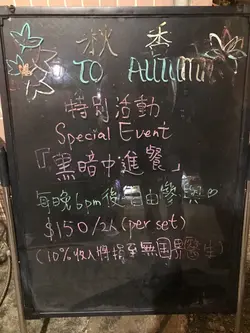 秋香
TO AUTUMN
特別活動
Special Event
「黑暗中進餐」
每晚6pm後自由參與
$150/2人(per set)
(10%收入將捐至無國界醫生)